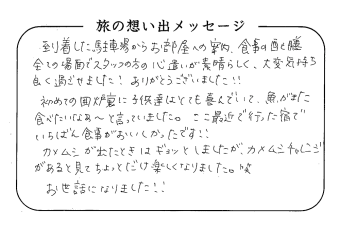 旅の想い出メッセージ
到着した駐車場からお部屋への案内、食事の配膳
全ての場面でスタッフの方の心遣いが素晴らしく、大変気持ち
良く過ごせました！ありがとうございました！！
初めての囲炉裏に子供達はとても喜んでいて、魚がまた
食べたいなぁ〜と言っていました。ここ最近で行った宿で
いちばん食事がおいしかったです！！
カメムシが出たときはギョッとしましたが、カメムシチャレンジ
があると見てちょっとだけ楽しくなりました。
お世話になりました！！